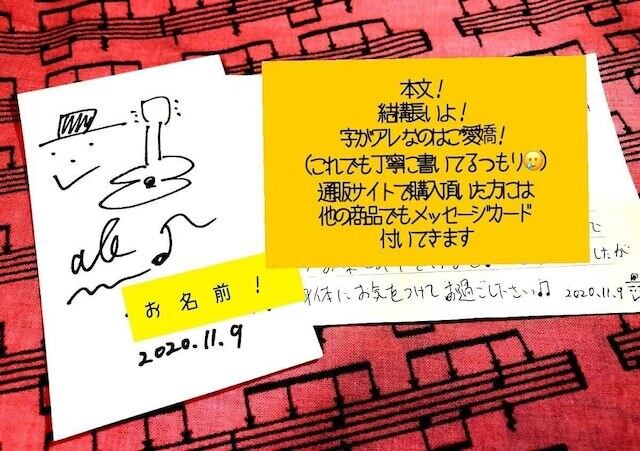 お名前！
2020.11.9
本文！
結構長いよ！
字がアレなのはご愛嬌！
（これでも丁寧に書いてるつもり🥲）
通販サイトで購入頂いた方には
他の商品でもメッセージカード
付いてきます
で
したが
体にお気をつけてお過ごし下さい♫ 2020.11.9